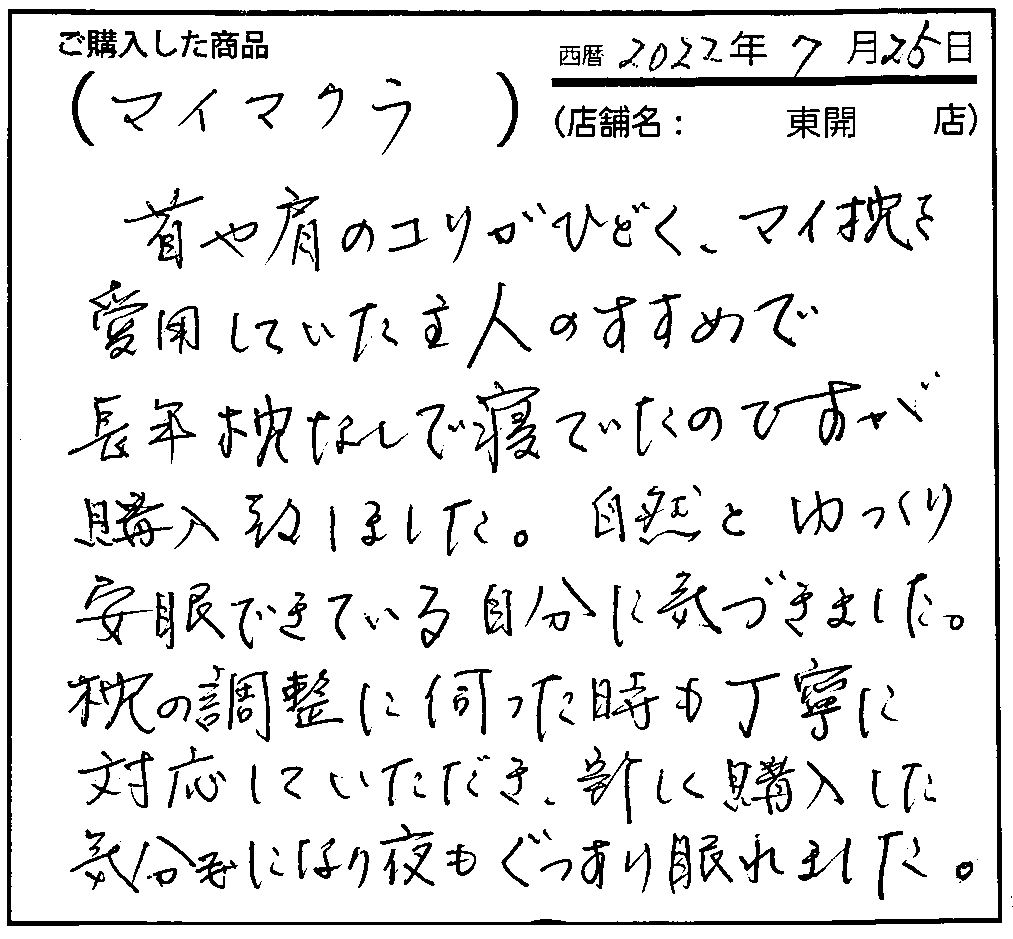 ご購入した商品
西暦 2022年 7月25日
(マイマクラ)
(店舗名: 東開 店)
首や肩のコリがひどく、マイ枕を
愛用していた主人のすすめで
長年枕なしで寝ていたのですが
購入致しました。自然とゆっくり
安眠できている自分に気づきました。
枕の調整に伺った時も丁寧に
対応していただき、新しく購入した
気分にになり夜もぐっすり眠れました。